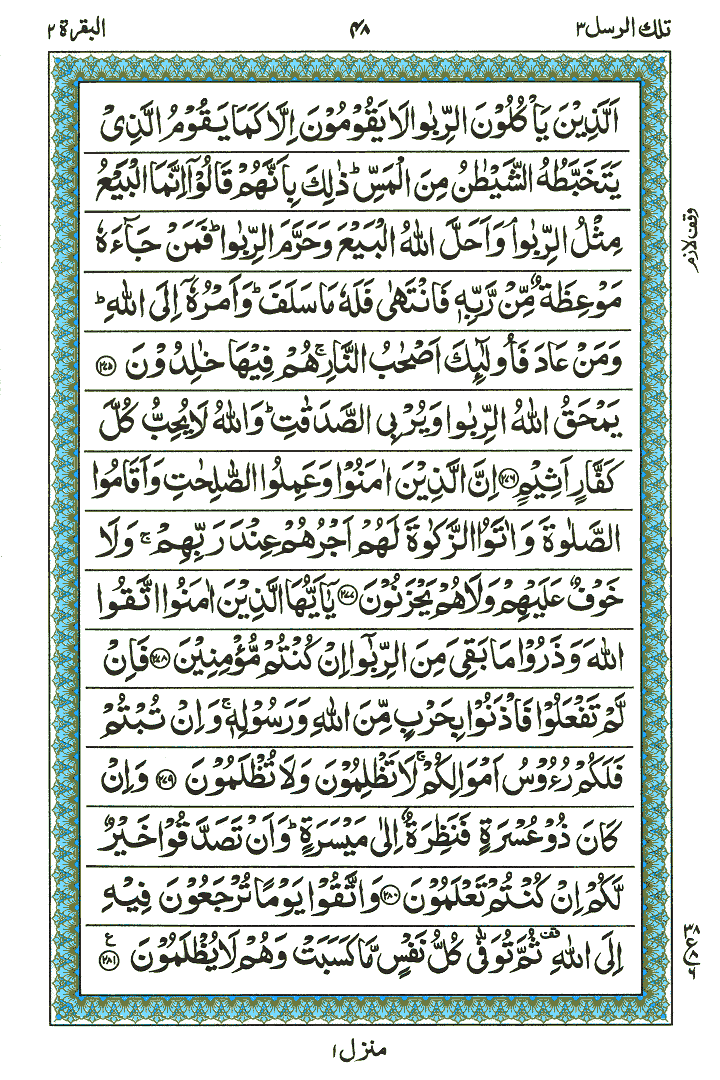 تلك الرسل ٣
۴۸
البقرة ٢
اَلَّذِيْنَ يَاْكُلُوْنَ الرِّبٰوا لَا يَقُوْمُوْنَ اِلَّا كَمَا يَقُوْمُ الَّذِىْ
يَتَخَبَّطُهُ الشَّيْطٰنُ مِنَ الْمَسِّ ؕ ذٰلِكَ بِاَنَّهُمْ قَالُوْۤا اِنَّمَا الْبَيْعُ
مِثْلُ الرِّبٰوا ۘ وَاَحَلَّ اللّٰهُ الْبَيْعَ وَحَرَّمَ الرِّبٰوا ؕ فَمَنْ جَآءَهٗ
مَوْعِظَةٌ مِّنْ رَّبِّهٖ فَانْتَهٰى فَلَهٗ مَا سَلَفَ ؕ وَاَمْرُهٗۤ اِلَى اللّٰهِ ؕ
وَمَنْ عَادَ فَاُولٰٓئِكَ اَصْحٰبُ النَّارِ ۚ هُمْ فِيْهَا خٰلِدُوْنَ ﴿۲۷۵﴾
يَمْحَقُ اللّٰهُ الرِّبٰوا وَيُرْبِى الصَّدَقٰتِ ؕ وَاللّٰهُ لَا يُحِبُّ كُلَّ
كَفَّارٍ اَثِيْمٍ ﴿۲۷۶﴾ اِنَّ الَّذِيْنَ اٰمَنُوْا وَعَمِلُوا الصّٰلِحٰتِ وَاَقَامُوا
الصَّلٰوةَ وَاٰتَوُا الزَّكٰوةَ لَهُمْ اَجْرُهُمْ عِنْدَ رَبِّهِمْ ۚ وَلَا
خَوْفٌ عَلَيْهِمْ وَلَا هُمْ يَحْزَنُوْنَ ﴿۲۷۷﴾ يٰۤاَيُّهَا الَّذِيْنَ اٰمَنُوا اتَّقُوا
اللّٰهَ وَذَرُوْا مَا بَقِىَ مِنَ الرِّبٰۤوا اِنْ كُنْتُمْ مُّؤْمِنِيْنَ ﴿۲۷۸﴾ فَاِنْ
لَّمْ تَفْعَلُوْا فَاْذَنُوْا بِحَرْبٍ مِّنَ اللّٰهِ وَرَسُوْلِهٖ ۚ وَاِنْ تُبْتُمْ
فَلَكُمْ رُءُوْسُ اَمْوَالِكُمْ ۚ لَا تَظْلِمُوْنَ وَلَا تُظْلَمُوْنَ ﴿۲۷۹﴾ وَاِنْ
كَانَ ذُوْ عُسْرَةٍ فَنَظِرَةٌ اِلٰى مَيْسَرَةٍ ؕ وَاَنْ تَصَدَّقُوْا خَيْرٌ
لَّكُمْ اِنْ كُنْتُمْ تَعْلَمُوْنَ ﴿۲۸۰﴾ وَاتَّقُوْا يَوْمًا تُرْجَعُوْنَ فِيْهِ
اِلَى اللّٰهِ ۗ ثُمَّ تُوَفّٰى كُلُّ نَفْسٍ مَّا كَسَبَتْ وَهُمْ لَا يُظْلَمُوْنَ ﴿۲۸۱﴾ ع
وقف لازم
منزل ١